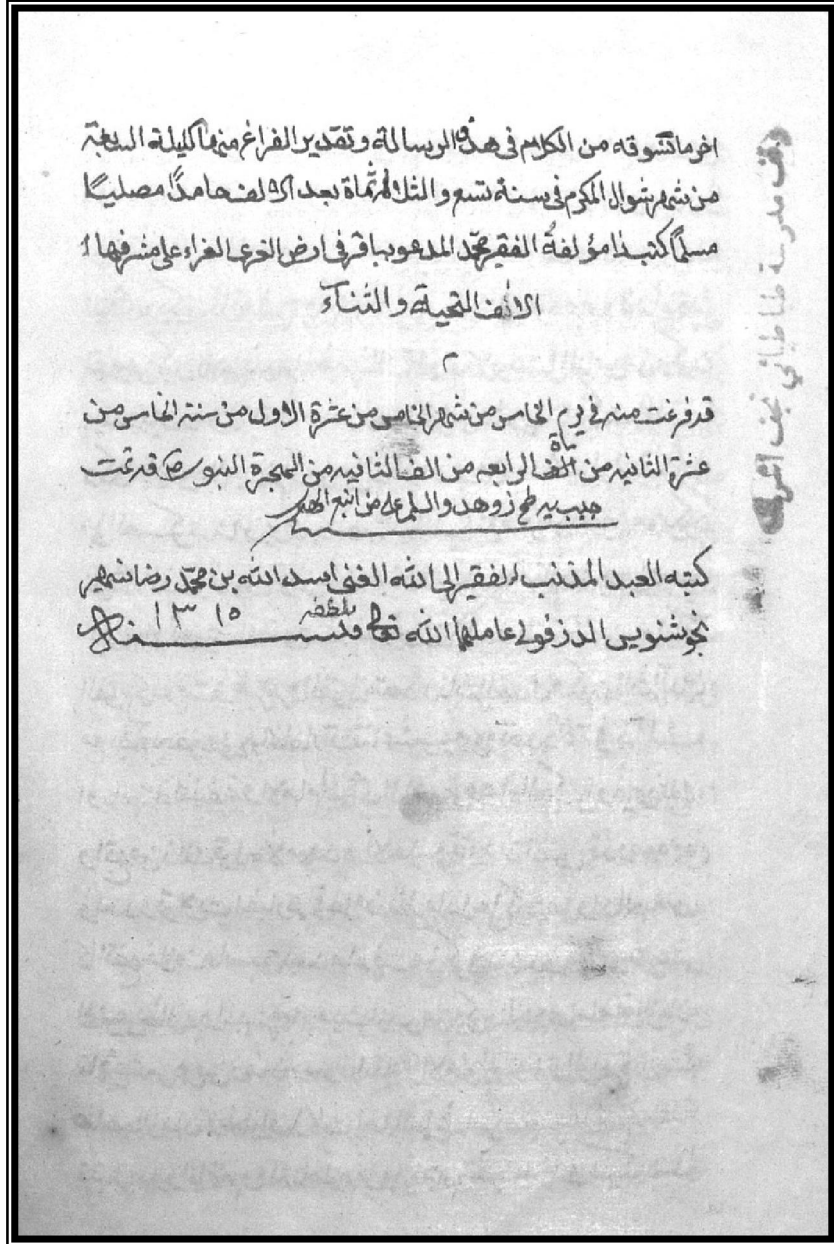 اخر ما تشوقه من الكلام في هذه الرسالة و تقدير الفراغ منها كليلة السابعة
من شهر شوال المكرم في سنة تسع و الثلاثمائة بعد الالف حامداً مصلياً
مسلماً كتب ذا مؤلفه الفقير محمد المدعو بباقر في ارض الغرى الغراء على مشرفها
الالف التحية و الثناء
م
قد فرغت منه في يوم الخامس من شهر الخامس من عشرة الاول من سنة الخامس من
عشرة الثانيه من مأة الرابعه من الف الثانيه من الهجرة النبويه قد تمت
بيد والسلم على من اتبع الهدى
كتبه العبد المذنب الفقير الى الله الغنى اسد الله بن محمد رضا شهير
بخوشنويس الدزفولى عاملهما الله تعالى بلطفه ١٣١٥
وقف مدرسة طباطبائي نجف اشرف